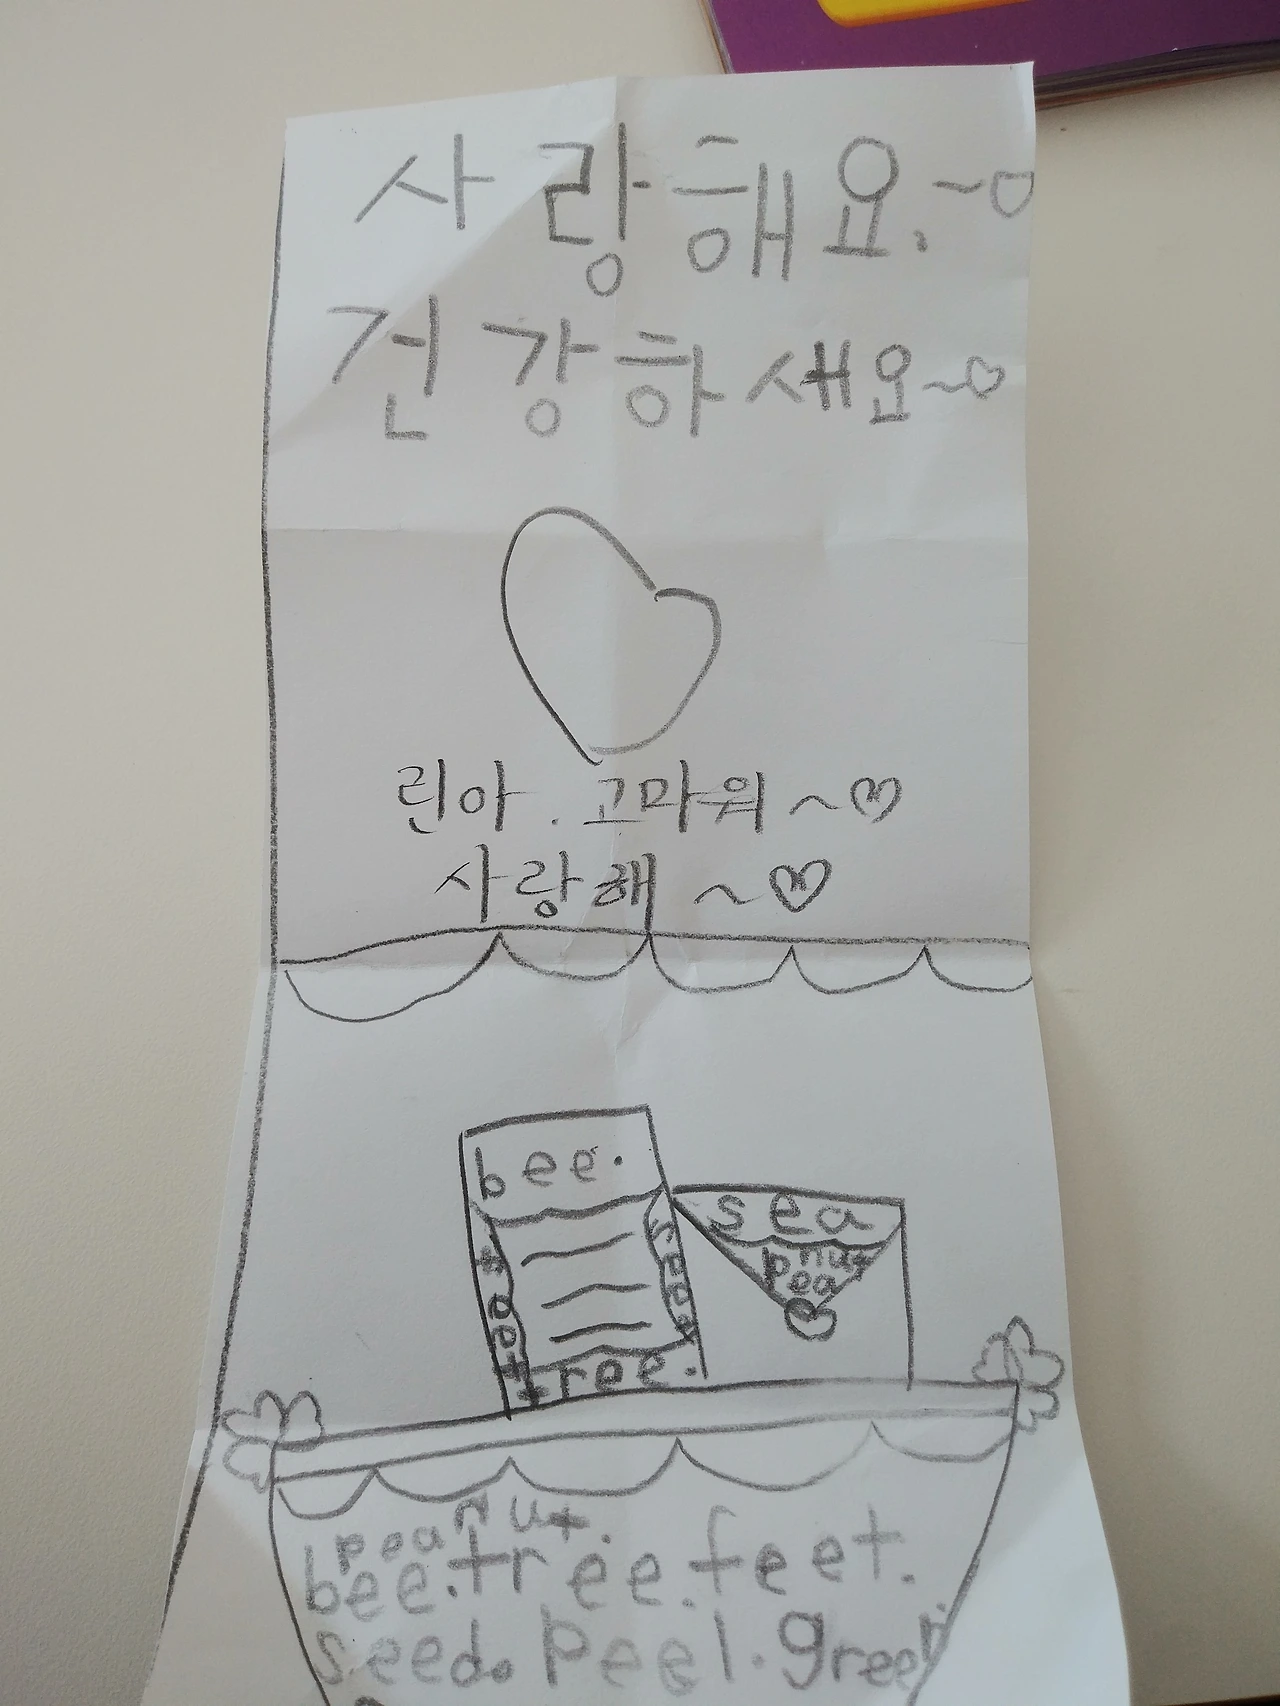 사랑해요.~♡
건강하세요~♡
린아. 고마워~♡
사랑해~♡
bee.
sea
peanut
feet
seed
tree.
peanut.
bee.tree.feet.
seed.peel.green